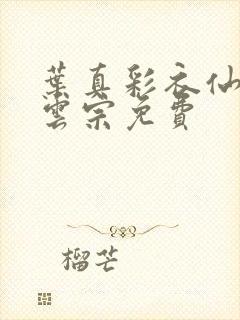 葉真彩衣仙
雲宗免費
榴芒